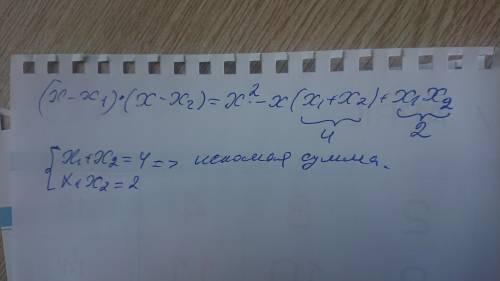 (x-x₁)·(x-x₂)=x²-x(x₁+x₂)+x₁x₂
4 2
{x₁+x₂=4=> искомая сумма.
x₁x₂=2